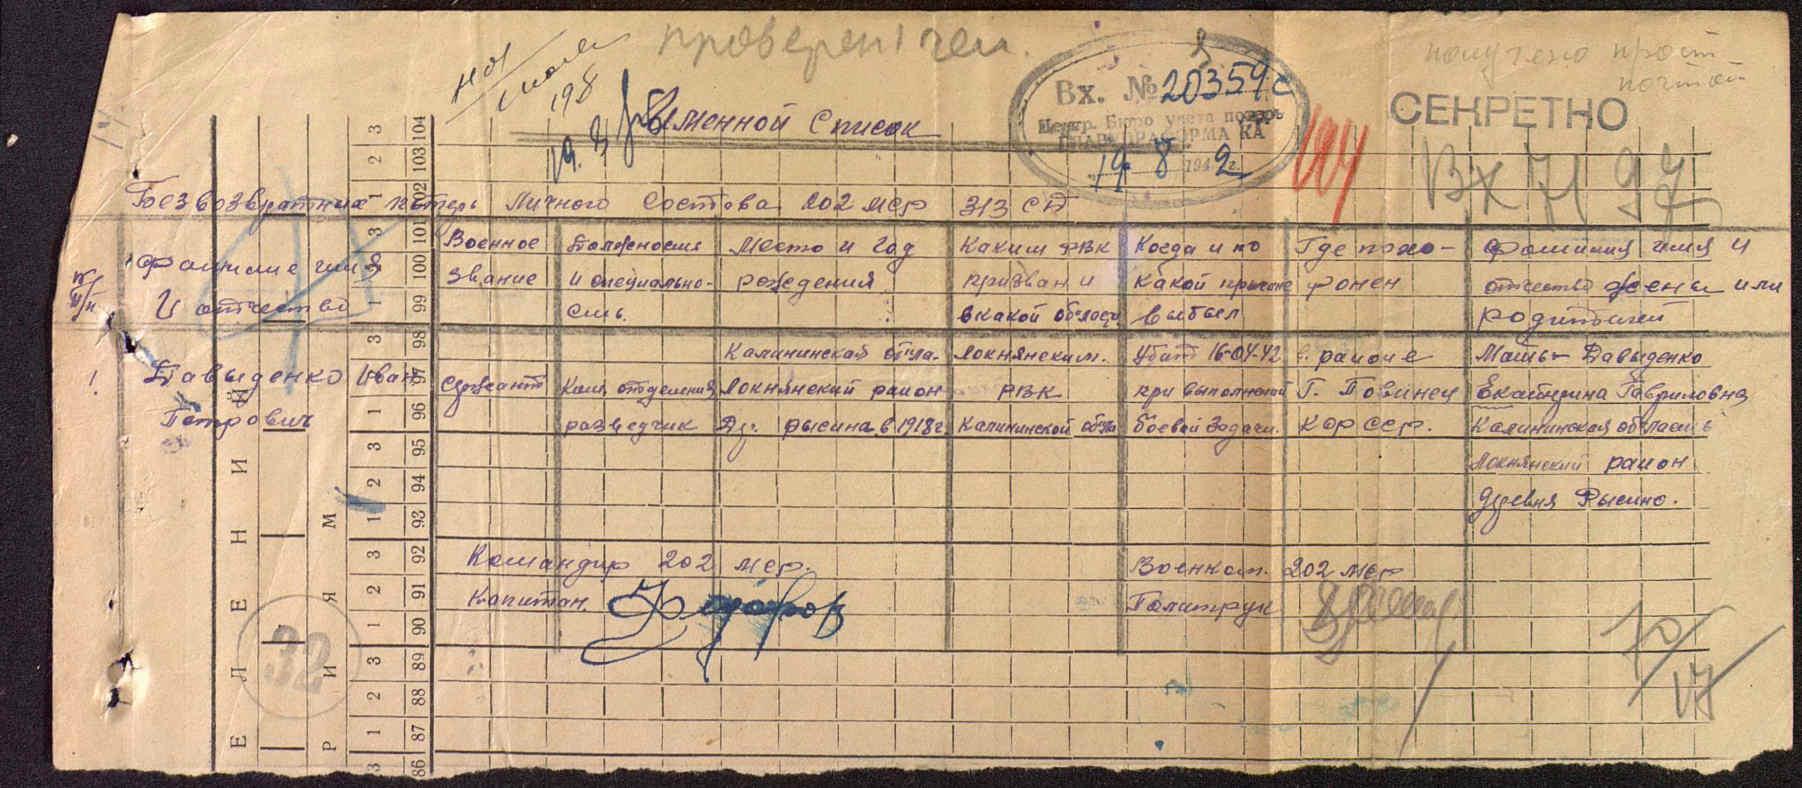 проверен
19.8
Вх. № 20359с
Центр. Бюро учета потерь
19 8 1942 г.
СЕКРЕТНО
получено прост
почтой
Вх 7197
Именной Список
Безвозвратных потерь Личного Состава 202 мср 313 СД
№ п/п
Фамилие имя И отчество
Военное звание
Должность и специальность.
Место и Год рождения
Каким РВК призван и в какой област
Когда и по какой причине выбыл
Где похоронен
Фамилия имя и отчество жены или родителей
1
Давыденко Иван Петрович
Сержант
Ком. отделения разведчик
Калининская обла. Локнянский район Др. Рысина в 1918 г.
Локнянским. РВК Калининской обла
Убит 16-04-42 при выполнений боевой Задачи.
в районе Г. Повинец КФССР.
Мать Давыденко Екатерина Гавриловна Калининская область Локнянский район Деревня Рысино.
Командир 202 мср.
Капитан
Военком. 202 мср
Политрук
32
70/17
104 103 102 101 100 99 98 97 96 95 94 93 92 91 90 89 88 87 86